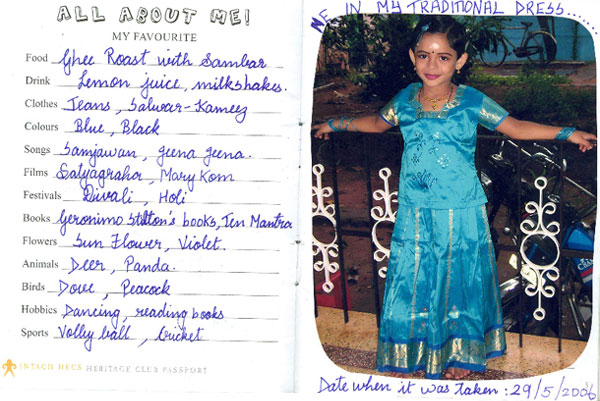 ALL ABOUT ME!
MY FAVOURITE
Food Ghee Roast with Sambar
Drink Lemon juice, milkshakes.
Clothes Jeans, Salwar-Kameez
Colours Blue, Black
Songs Samjawan, Jeena Jeena.
Films Satyagraha, Mary Kom
Festivals Divali, Holi
Books Geronimo Stilton's books, Ten Mantra
Flowers Sun Flower, Violet.
Animals Deer, Panda.
Birds Dove, Peacock
Hobbies Dancing, reading books
Sports Volly ball, Cricket
INTACH HECS HERITAGE CLUB PASSPORT
ME IN MY TRADITIONAL DRESS.......
Date when it was taken : 29/5/2006